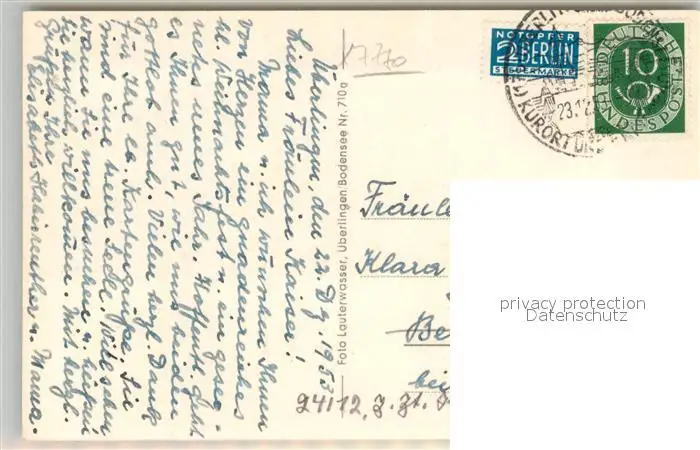 Überlingen, den 22. Dez. 1953
Liebes Fräulein Kaiser!
Mama u. ich wünschen Ihnen
von Herzen ein gnadenreiches
hl. Weihnachtsfest u. ein geseg-
netes neues Jahr. Hoffentl. geht
es Ihnen gut, wie uns beiden
gottlob auch. Vielen herzl. Dank
für Ihre lb. Kartengrüße. Sie
sind eine treue Seele! Wie schön
war Sie uns besuchen u. seien
Sie herzl. willkommen. Mit herzl.
Grüßen Ihre
Elisabeth u. Mama.
Foto Lauterwasser, Überlingen/Bodensee Nr. 710a
1770
NOTOPFER
2 BERLIN
STEUERMARKE
KURORT UND
23.12.
DEUTSCHE
BUNDESPOST
10
Fräule
Klara
Be
bei
24/12. z. Zt.
privacy protection
Datenschutz